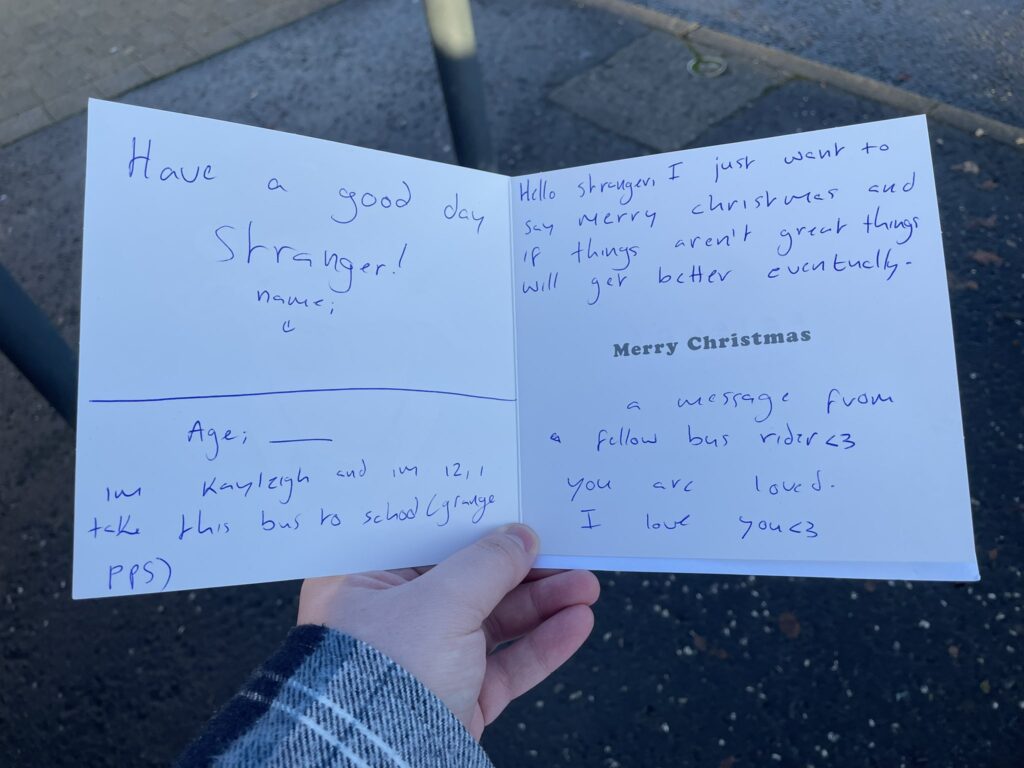 Have a good day
Stranger!
name;
Age; ____
im Kayleigh and im 12, i
take this bus to school (grange
PPS)
Hello stranger, I just want to
say merry christmas and
if things aren't great things
will get better eventually.
Merry Christmas
a message from
a fellow bus rider <3
you are loved.
I love you <3